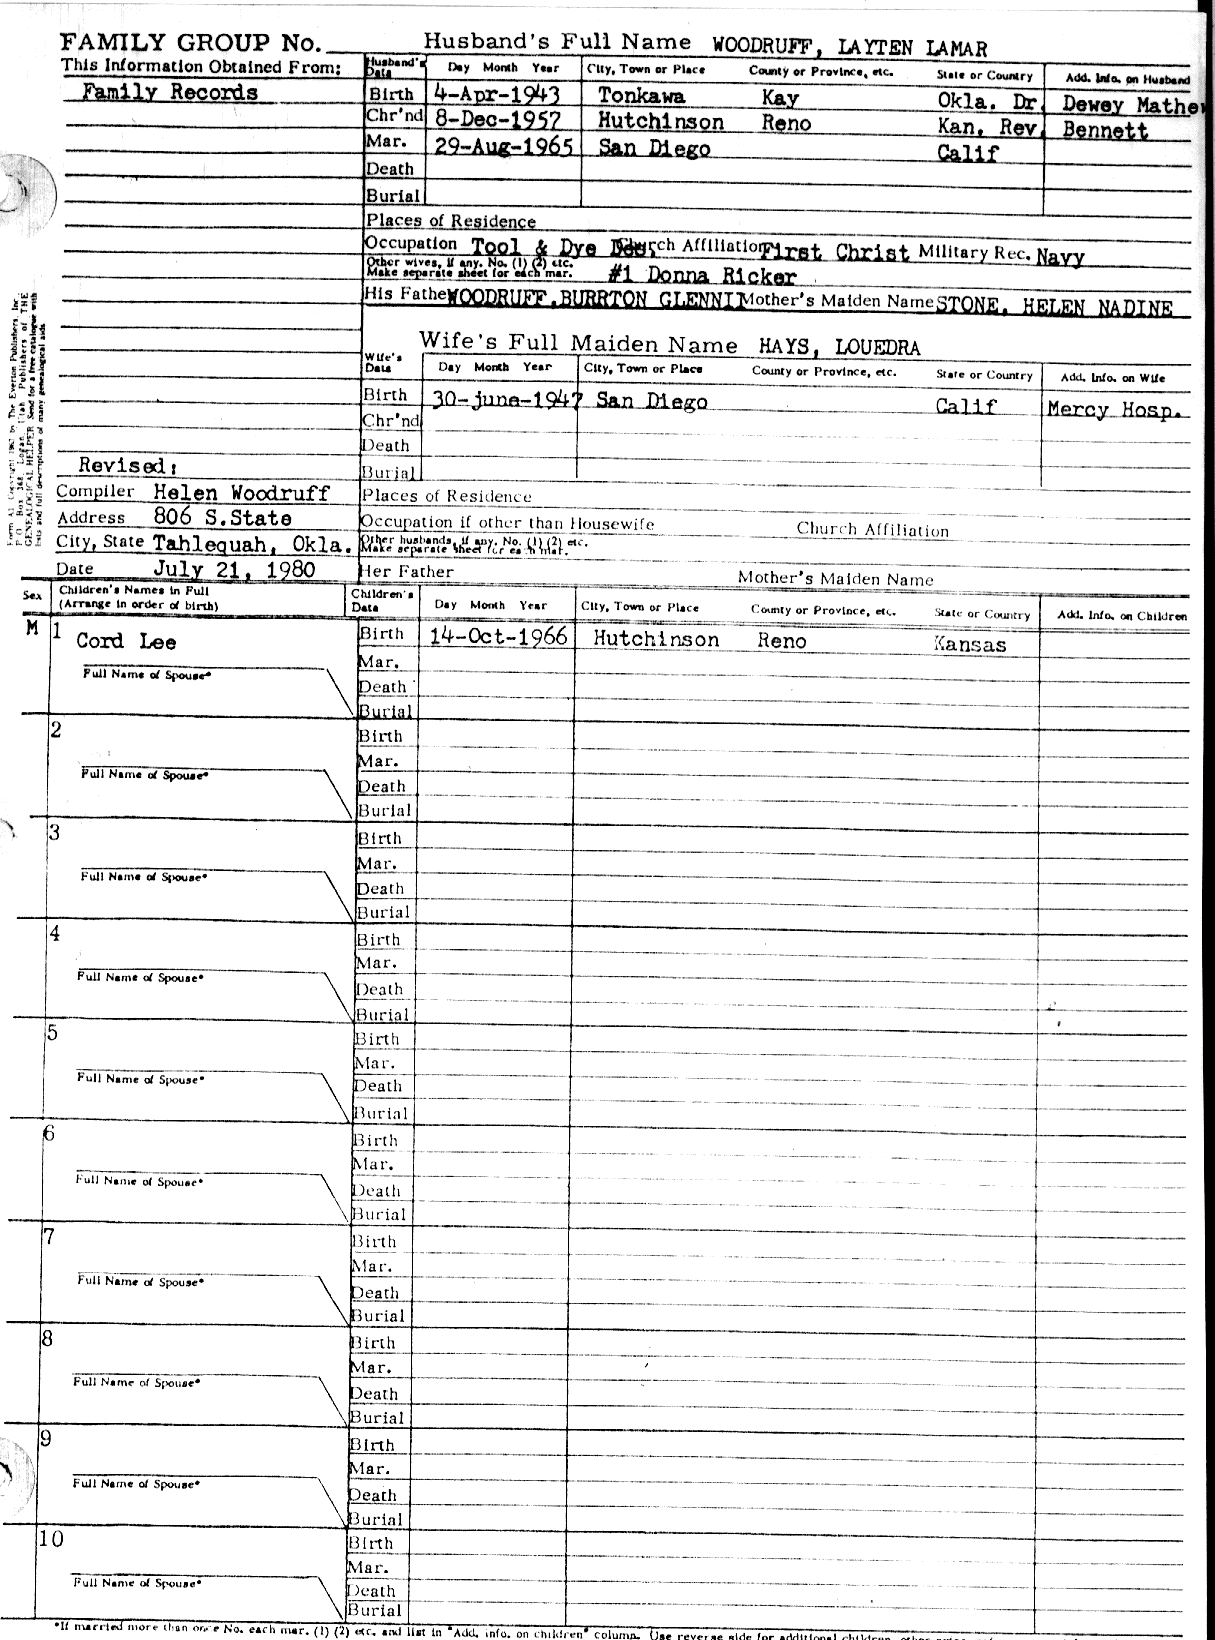 FAMILY GROUP No. Husband's Full Name WOODRUFF, LAYTEN LAMAR
This Information Obtained From: Husband's Data Day Month Year City, Town or Place County or Province, etc. State or Country Add. Info. on Husband
Family Records Birth 4-Apr-1943 Tonkawa Kay Okla. Dr. Dewey Mathe
Chr'nd 8-Dec-1957 Hutchinson Reno Kan, Rev. Bennett
Mar. 29-Aug-1965 San Diego Calif
Death
Burial
Places of Residence
Occupation Tool & Dye Church Affiliation First Christ Military Rec. Navy
Other wives, if any. No. (1) (2) etc.
Make separate sheet for each mar. #1 Donna Ricker
His Father WOODRUFF, BURRTON GLENNI Mother's Maiden Name STONE, HELEN NADINE
Wife's Full Maiden Name HAYS, LOUEDRA
Wife's Data Day Month Year City, Town or Place County or Province, etc. State or Country Add. Info. on Wife
Birth 30-june-1947 San Diego Calif Mercy Hosp.
Chr'nd
Death
Revised: Burial
Compiler Helen Woodruff Places of Residence
Address 806 S.State Occupation if other than Housewife Church Affiliation
City, State Tahlequah, Okla. Other husbands, if any. No. (1) (2) etc.
Make separate sheet for each mar.
Date July 21, 1980 Her Father Mother's Maiden Name
Form A1 Copyright 1962 by The Everton Publishers, Inc.
P.O. Box 368, Logan, Utah Publishers of THE
GENEALOGICAL HELPER Send for a free catalogue with
lists and full descriptions of many genealogical aids.
Sex Children's Names in Full (Arrange in order of birth) Children's Data Day Month Year City, Town or Place County or Province, etc. State or Country Add. Info. on Children
M 1 Cord Lee Birth 14-Oct-1966 Hutchinson Reno Kansas
Mar.
Full Name of Spouse*
Death
Burial
2 Birth
Mar.
Full Name of Spouse*
Death
Burial
3 Birth
Mar.
Full Name of Spouse*
Death
Burial
4 Birth
Mar.
Full Name of Spouse*
Death
Burial
5 Birth
Mar.
Full Name of Spouse*
Death
Burial
6 Birth
Mar.
Full Name of Spouse*
Death
Burial
7 Birth
Mar.
Full Name of Spouse*
Death
Burial
8 Birth
Mar.
Full Name of Spouse*
Death
Burial
9 Birth
Mar.
Full Name of Spouse*
Death
Burial
10 Birth
Mar.
Full Name of Spouse*
Death
Burial
*If married more than once No. each mar. (1) (2) etc. and list in "Add. info. on children" column. Use reverse side for additional children, other